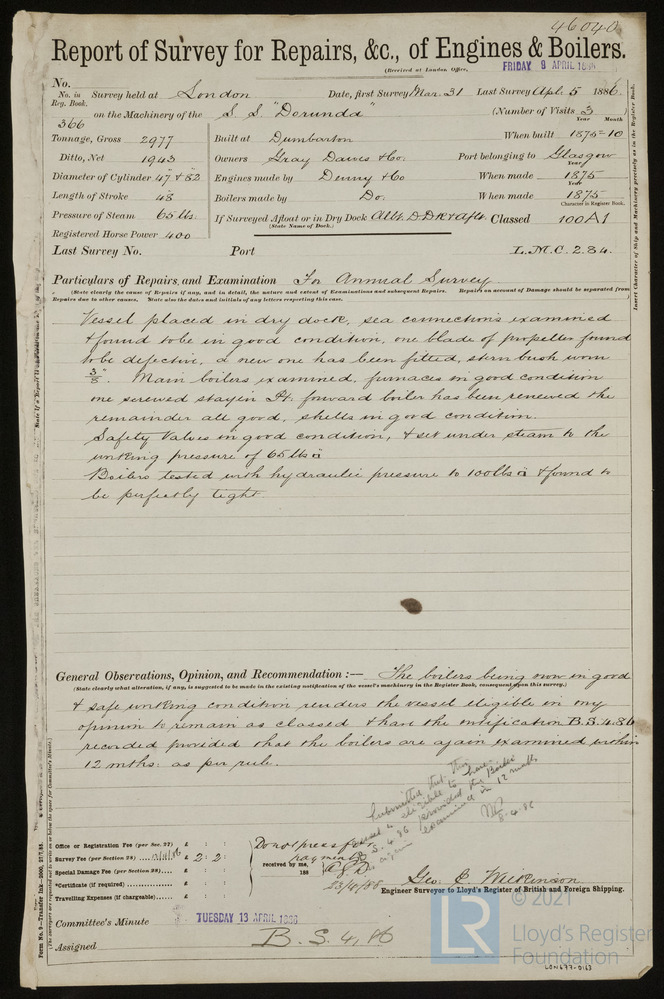 46040
Report of Survey for Repairs, &c., of Engines & Boilers.
(Received at London Office, FRIDAY 9 APRIL 1886
No.
No. in Reg. Book. Survey held at London Date, first Survey Mar. 31 Last Survey Apl. 5 1886
366 on the Machinery of the S.S. "Dorunda" (Number of Visits 3
Year Month
Tonnage, Gross 2977 Built at Dumbarton When built 1875-10
Ditto, Net 1943 Owners Gray Dawes & Co. Port belonging to Glasgow
Diameter of Cylinder 47 & 82 Engines made by Denny & Co When made 1875
Length of Stroke 48 Boilers made by Do. When made 1875
Pressure of Steam 65 lbs If Surveyed Afloat or in Dry Dock Classed 100A1
(State Name of Dock.)
Character in Register Book.
Registered Horse Power 400
Last Survey No. Port L.M.C. 2.84.
Particulars of Repairs and Examination For Annual Survey
(State clearly the cause of Repairs if any, and in detail, the nature and extent of Examinations and subsequent Repairs. Repairs on account of Damage should be separated from
Repairs due to other causes. State also the dates and initials of any letters respecting this case.
Vessel placed in dry dock, sea connections examined
& found to be in good condition, one blade of propeller found
to be defective, a new one has been fitted, stern bush worn
3/8". Main boilers examined, furnaces in good condition
one screwed stay in Pt. forward boiler has been renewed the
remainder all good, shells in good condition.
Safety Valves in good condition, & set under steam to the
working pressure of 65 lbs □"
Boilers tested with hydraulic pressure to 100 lbs □" & found to
be perfectly tight
General Observations, Opinion, and Recommendation :— The boilers being now in good
(State clearly what alteration, if any, is suggested to be made in the existing notification of the vessel's machinery in the Register Book, consequent upon this survey.)
& safe working condition renders the vessel eligible in my
opinion to remain as classed & have the notification B.S. 4.86
recorded provided that the boilers are again examined within
12 mths: as per rule.
Submitted that this
vessel is eligible to have
B.S. 4.86 provided the Boilers
be again examined in 12 months
8.4.86
Office or Registration Fee (per Sec. 27) £ : :
Survey Fee (per Section 28) £ 2 : 2 :
Special Damage Fee (per Section 28) £ : :
*Certificate (if required) £ : :
Travelling Expenses (if chargeable) £ : :
Do not press for
payment
received by me,
188
23/4/86
Geo. C. Wilkinson
Engineer Surveyor to Lloyd's Register of British and Foreign Shipping.
Committee's Minute TUESDAY 13 APRIL 1886
Assigned B.S. 4,86
Insert Character of Ship and Machinery precisely as in the Register Book.
Form No. 9—Transfer Ink—5000, 27.7.85.
(The Surveyors are requested not to write on or below the space for Committee's Minute.)
© 2021
LR
Lloyd's Register
Foundation
LON677-0163